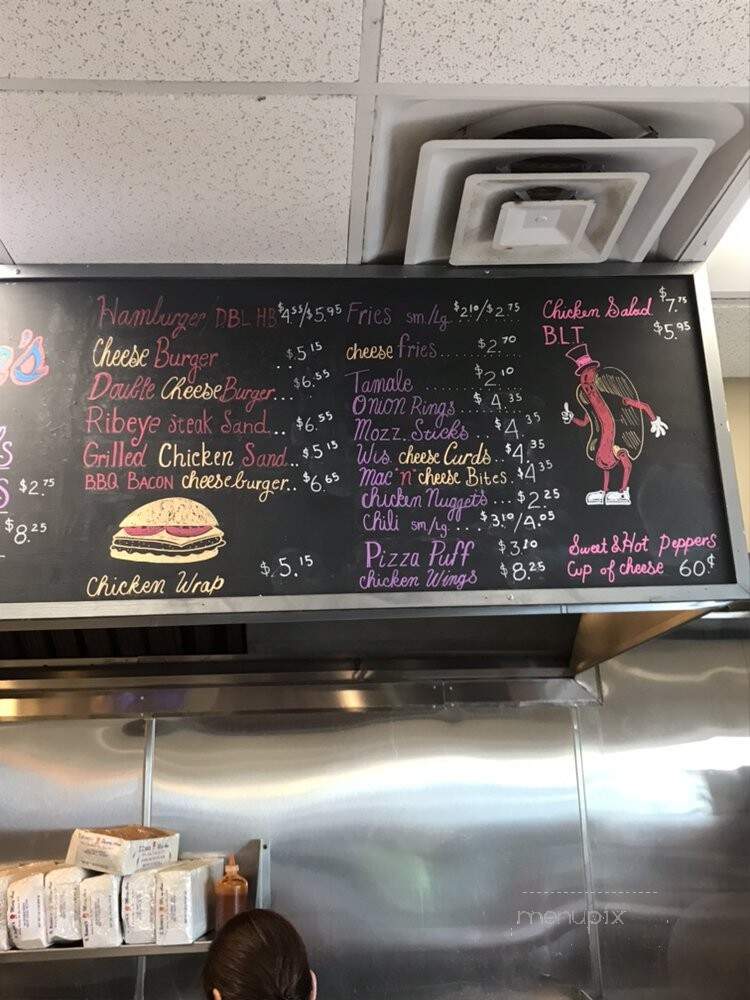 's
$2.75
$8.25
Hamburger DBL HB $4.55/$5.95
Cheese Burger ..$.5 15
Double Cheese Burger... $6.55
Ribeye steak Sand.. $6.55
Grilled Chicken Sand... $5 15
B.B.Q. BACON cheeseburger.. $6.65
Chicken Wrap $.5.15
Fries sm/lg. $2 10/$2.75
cheese fries..... $2.70
Tamale ........ $2.10
Onion Rings.... $4.35
Mozz. Sticks $4.35
Wis. cheese Curds.. $4.35
Mac "n" cheese Bites. $4.35
chicken Nuggets... $2.25
Chili sm/lg.... $3.10/4.05
Pizza Puff $3.10
chicken Wings $8.25
Chicken Salad $7.75
BLT $5.95
Sweet & Hot peppers
Cup of cheese 60¢
menupix